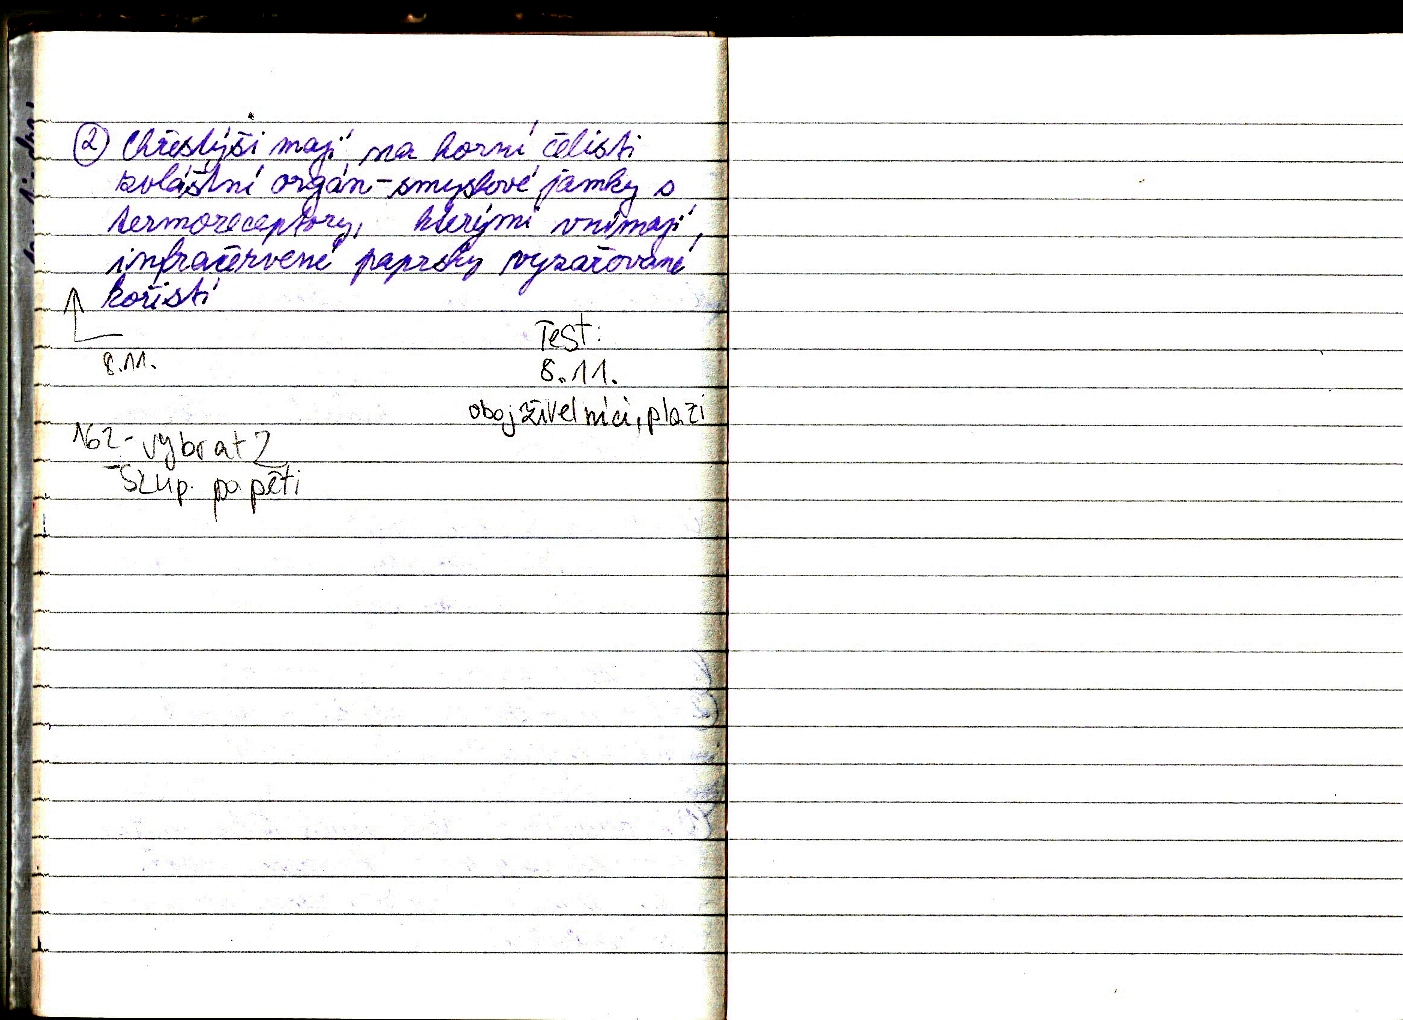 ② Chřestýši mají na horní čelisti
zvláštní orgán-smyslové jamky s
termoreceptory, kterými vnímají
infračervené paprsky vyzařované
kořistí
8.11.
Test:
8.11.
obojživelníci, plazi
162- vybrat 2
- Szup. papětí